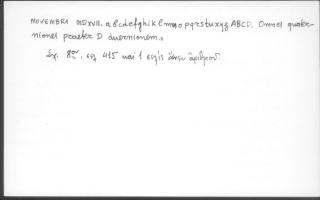 NOVEMBRI MDXVII. a b c d e f g h i k l m n o p q r s t u x y z A B C D. Omnes quater-
niones praeter D duernionem.»
Σχ. 8ον, σσ. 415 καὶ 1 φχις ἄνευ ἀριθμοῦ.